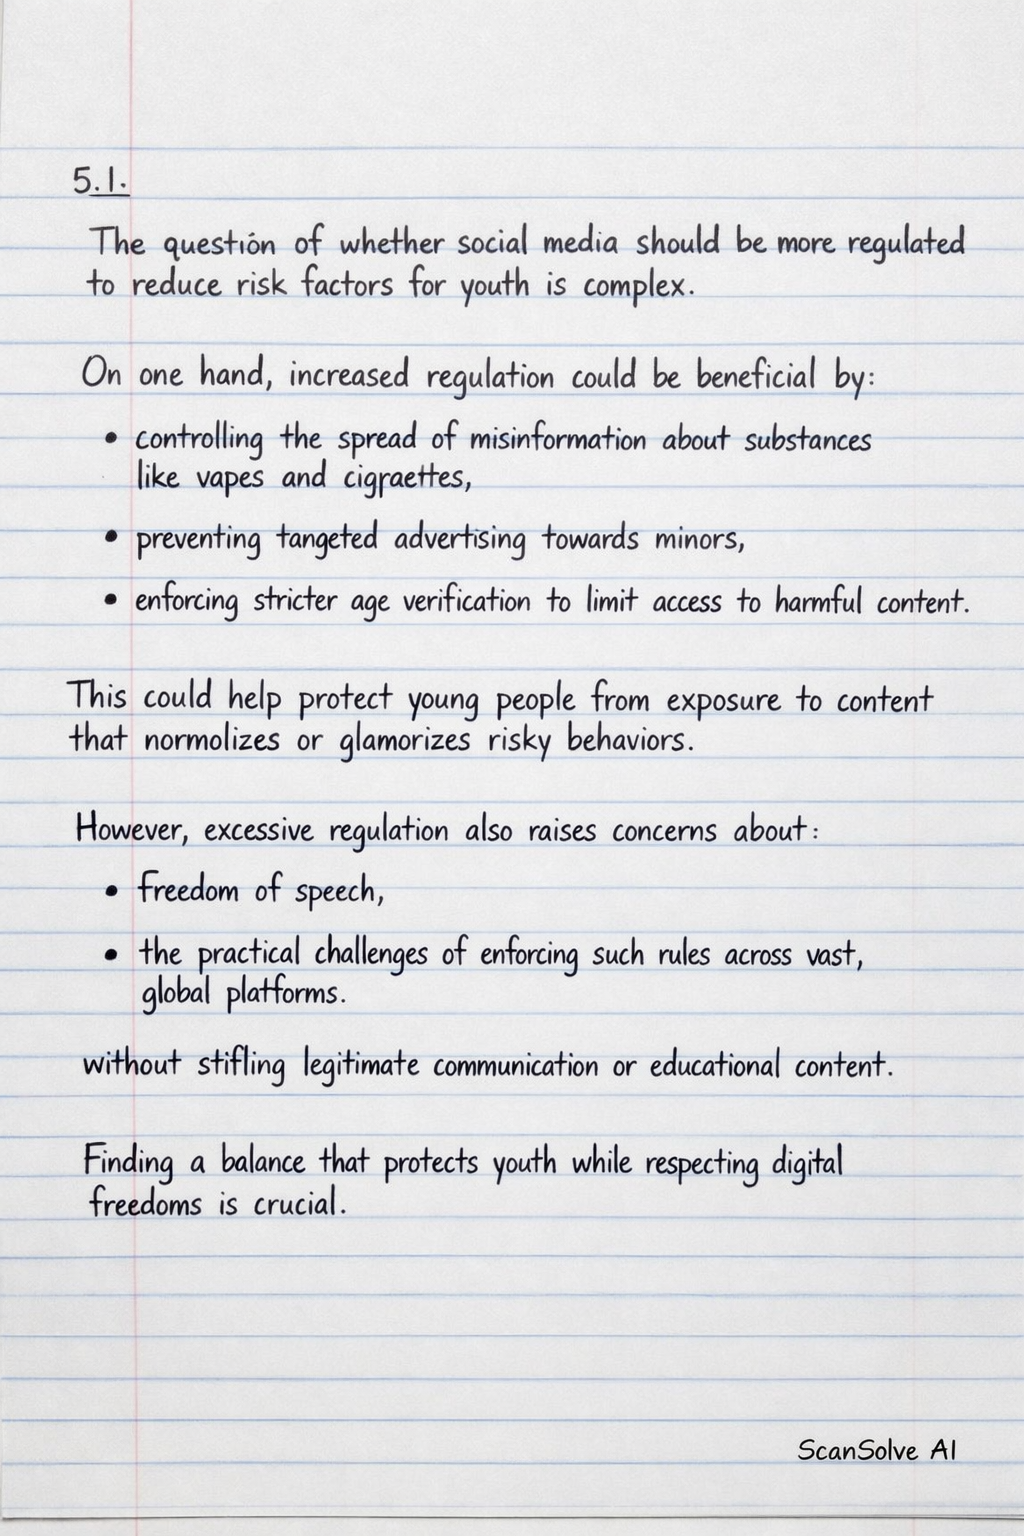 5.1.
The question of whether social media should be more regulated
to reduce risk factors for youth is complex.
On one hand, increased regulation could be beneficial by:
• controlling the spread of misinformation about substances
like vapes and cigraettes,
• preventing tangeted advertising towards minors,
• enforcing stricter age verification to limit access to harmful content.
This could help protect young people from exposure to content
that normolizes or glamorizes risky behaviors.
However, excessive regulation also raises concerns about:
• freedom of speech,
• the practical challenges of enforcing such rules across vast,
global platforms.
without stifling legitimate communication or educational content.
Finding a balance that protects youth while respecting digital
freedoms is crucial.
ScanSolve AI